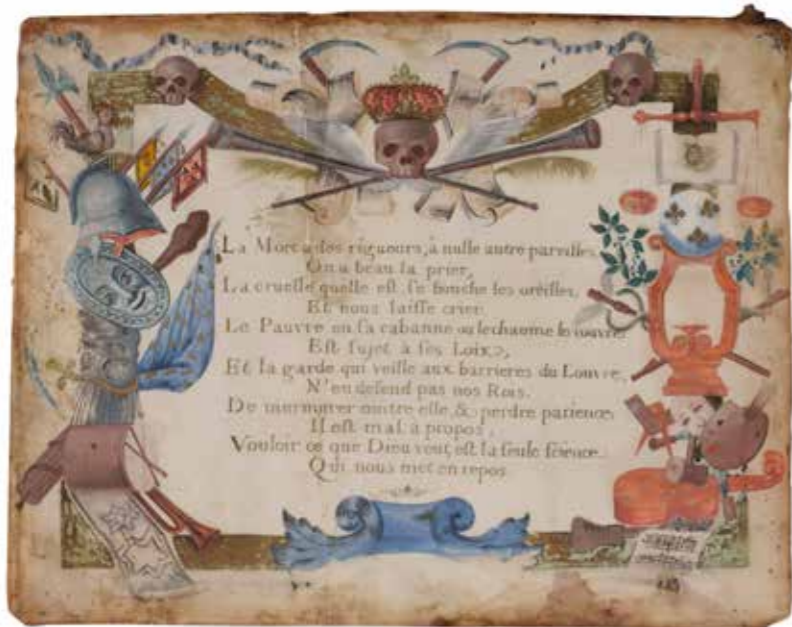 La Mort a des rigueurs, à nulle autre pareilles,
On a beau la prier,
La cruelle quelle est se bouche les oreilles,
Et nous laisse crier.
Le Pauvre en sa cabanne ou le chaume le couvre
Est sujet à ses Loix,
Et la garde qui veille aux barrieres du Louvre,
N'en defend pas nos Rois.
De murmurer contre elle, & perdre patience,
Il est mal à propos,
Vouloir ce que Dieu veut, est la seule science
Qui nous met en repos